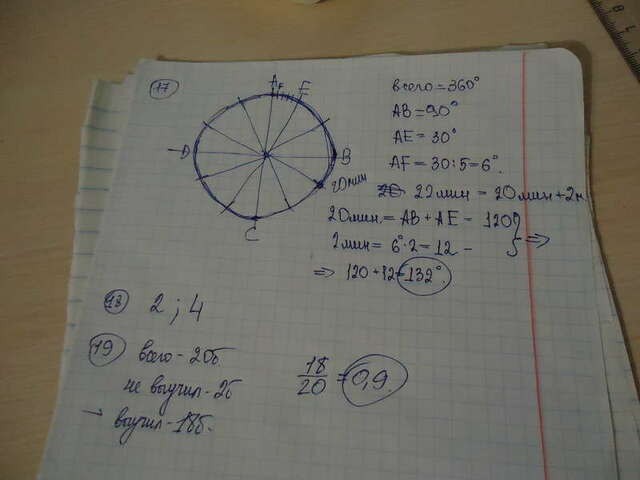 17
A F E
D
B
20мин
C
всего = 360°
AB = 90°
AE = 30°
AF = 30:5 = 6°.
22мин = 20мин + 2м
20мин. = AB + AE = 120°
2мин = 6°·2 = 12 -
} =>
=> 120 + 12 = 132°.
18 2 ; 4
19 всего - 20б
не выучил - 2б
→ выучил - 18б.
18/20 = 0,9.